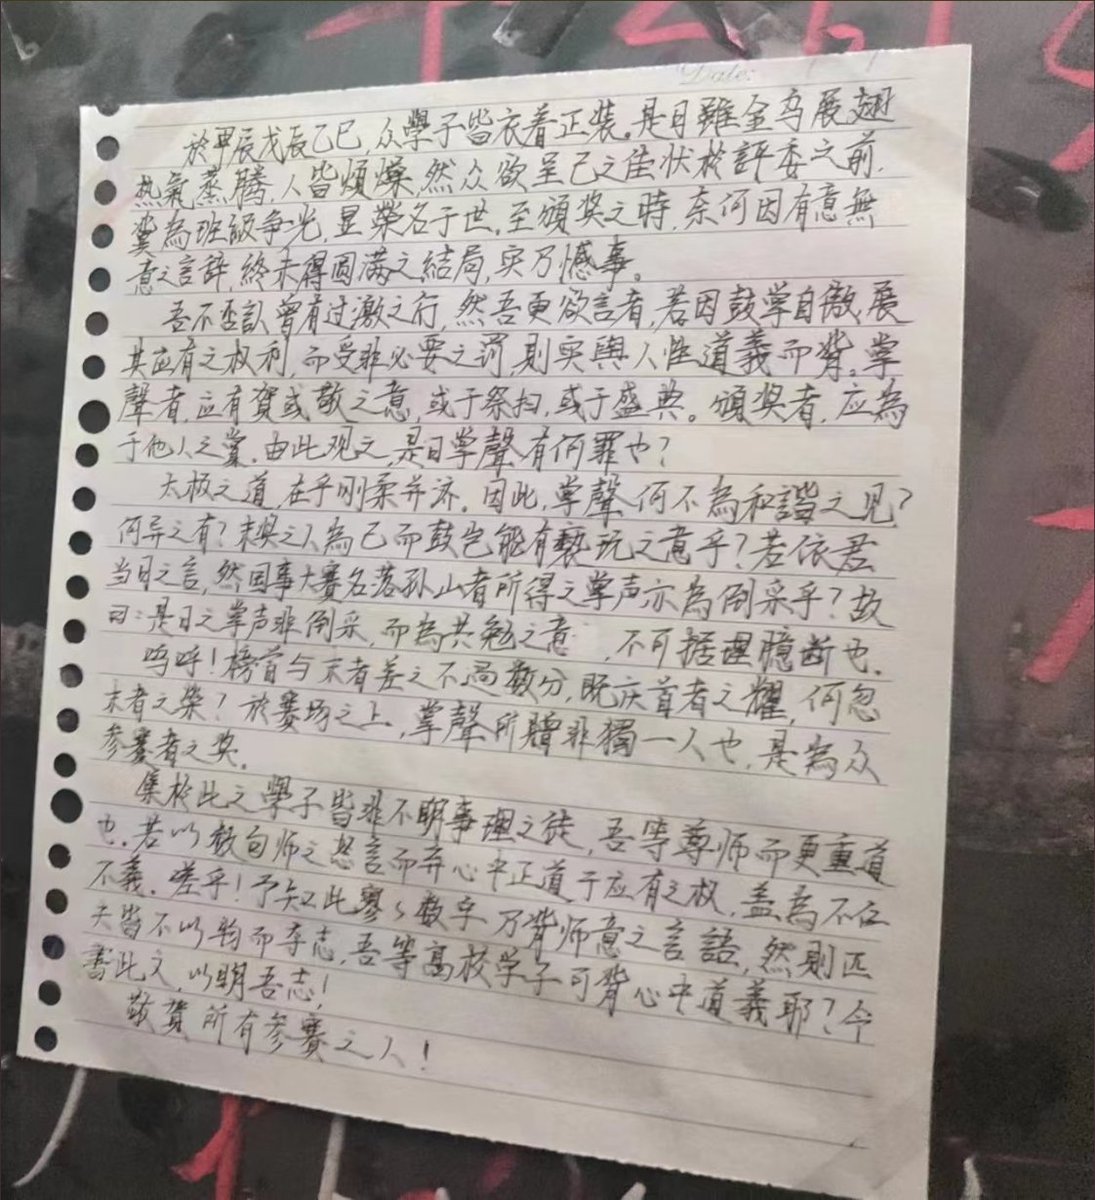 Date:
於甲辰戊辰乙巳,众學子皆衣着正装。是日雖金乌展翅
热氣蒸腾,人皆煩燥,然众欲呈己之佳状於評委之前,
冀為班級争光,显榮名于世。至頒奖之時,奈何因有意無
意之言辞,終未得圆满之结局,实乃憾事。
吾不否認曾有过激之行,然吾更欲言者,若因鼓掌自傲,展
其应有之权利,而受非必要之罚,則实與人性道義而背。掌
聲者,应有賀或敬之意,或于祭扫,或于盛典。頒奖者,应為
于他人之赏。由此观之,是日掌聲有何罪也?
太极之道,在乎刚柔并济。因此,掌聲何不為和諧之见?
何异之有?末奖之人為己而鼓岂能有亵玩之意乎?若依君
当日之言,然国事大赛名落孙山者所得之掌声亦為倒采乎?故
曰:是日之掌声非倒采,而為共勉之意,不可据理臆断也。
嗚呼!榜首与末者差之不過数分,既庆首者之耀,何忽
末者之柴?於赛场之上,掌聲所贈非獨一人也,是為众
参赛者之奖。
集於此之學子皆非不明事理之徒,吾等尊师而更重道
也。若以数句师之怒言而弃心中正道于应有之权,盖為不仁
不義。嗟乎!予知此寥々数字乃背师意之言語,然則匹
夫皆不以物而夺志,吾等高校学子可背心中道義耶?今
書此文,以明吾志!
敬賀所有参賽之人!